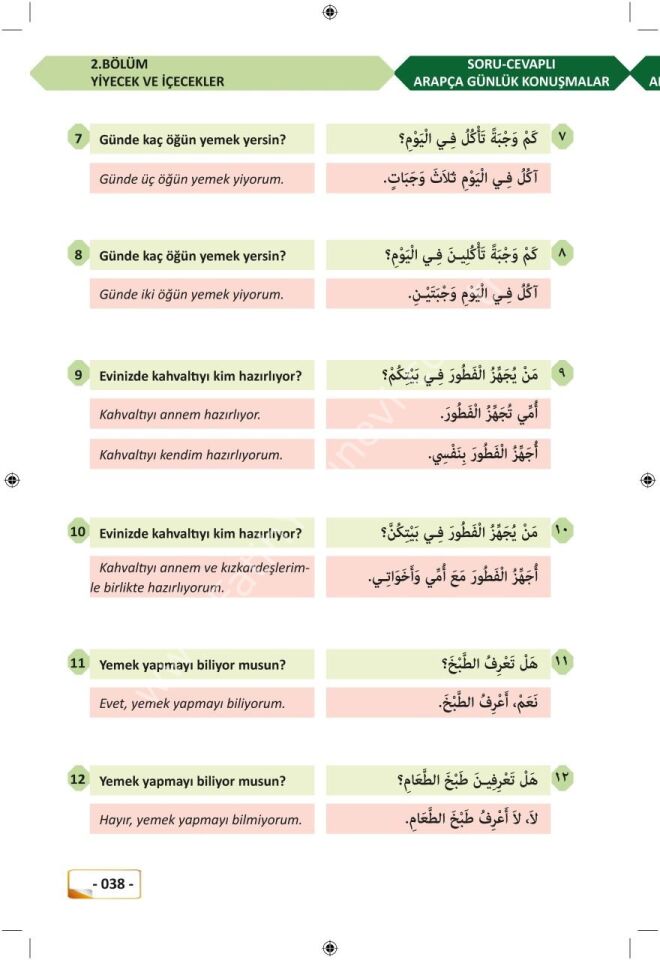 2.BÖLÜM
YİYECEK VE İÇECEKLER
SORU-CEVAPLI
ARAPÇA GÜNLÜK KONUŞMALAR
7 Günde kaç öğün yemek yersin? كَمْ وَجْبَةً تَأْكُلُ فِي الْيَوْمِ؟ ٧
Günde üç öğün yemek yiyorum. آكُلُ فِي الْيَوْمِ ثَلاَثَ وَجَبَاتٍ.
8 Günde kaç öğün yemek yersin? كَمْ وَجْبَةً تَأْكُلِينَ فِي الْيَوْمِ؟ ٨
Günde iki öğün yemek yiyorum. آكُلُ فِي الْيَوْمِ وَجْبَتَيْنِ.
9 Evinizde kahvaltıyı kim hazırlıyor? مَنْ يُجَهِّزُ الْفَطُورَ فِي بَيْتِكُمْ؟ ٩
Kahvaltıyı annem hazırlıyor. أُمِّي تُجَهِّزُ الْفَطُورَ.
Kahvaltıyı kendim hazırlıyorum. أُجَهِّزُ الْفَطُورَ بِنَفْسِي.
10 Evinizde kahvaltıyı kim hazırlıyor? مَنْ يُجَهِّزُ الْفَطُورَ فِي بَيْتِكُنَّ؟ ١٠
Kahvaltıyı annem ve kızkardeşlerim-
le birlikte hazırlıyorum. أُجَهِّزُ الْفَطُورَ مَعَ أُمِّي وَأَخَوَاتِي.
11 Yemek yapmayı biliyor musun? هَلْ تَعْرِفُ الطَّبْخَ؟ ١١
Evet, yemek yapmayı biliyorum. نَعَمْ، أَعْرِفُ الطَّبْخَ.
12 Yemek yapmayı biliyor musun? هَلْ تَعْرِفِينَ طَبْخَ الطَّعَامِ؟ ١٢
Hayır, yemek yapmayı bilmiyorum. لاَ، لاَ أَعْرِفُ طَبْخَ الطَّعَامِ.
- 038 -